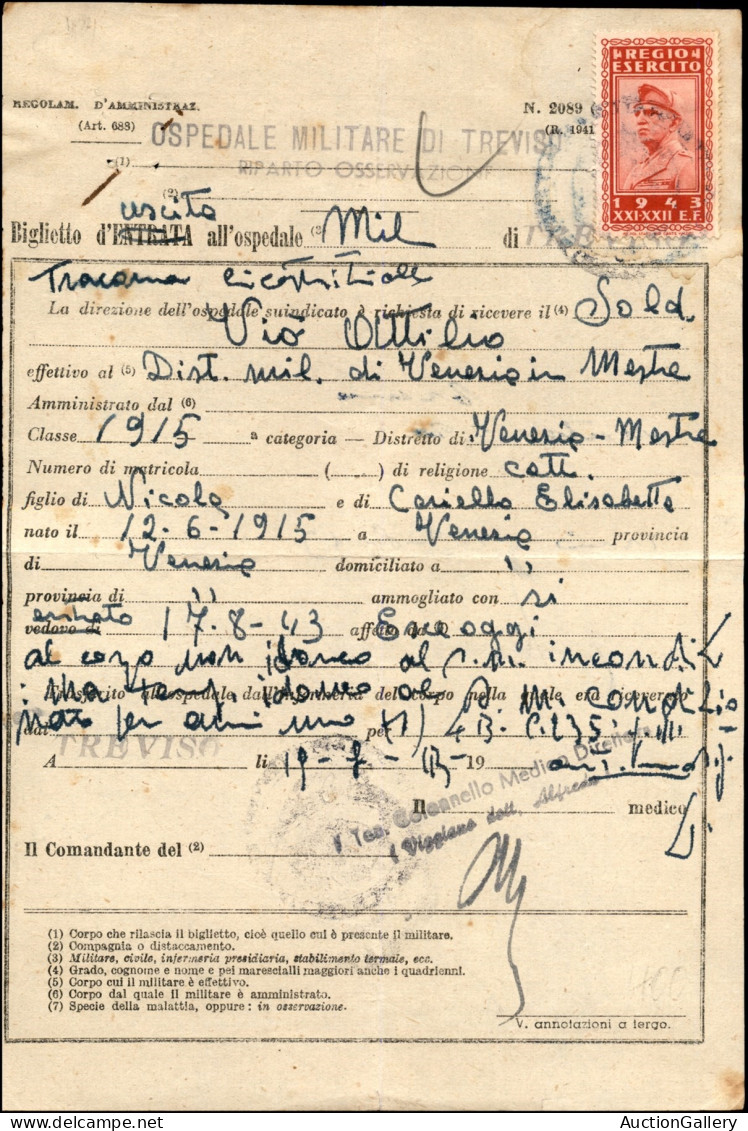 REGOLAM. D'AMMINISTRAZ.
(Art. 688)
N. 2089
(R. 1941
REGIO
ESERCITO
1943
XXI-XXII E.F.
OSPEDALE MILITARE DI TREVISO
RIPARTO OSSERVAZIONE
(1)
(2)
uscita
Biglietto d'ENTRATA all'ospedale (3 Mil di TREVISO
Tracoma
La direzione dell'ospedale suindicato è richiesta di ricevere il (4) Sold.
Vio Ottilio
effettivo al (5) Dist. mil. di Venezia in Mestre
Amministrato dal (6)
Classe 1915 a categoria — Distretto di Venezia - Mestre
Numero di matricola ( ) di religione catt.
figlio di Nicola e di Cariello Elisabetta
nato il 12-6-1915 a Venezia provincia
di Venezia domiciliato a "
provincia di " ammogliato con si
entrato
vedovo di 17-8-43 affetto da Esce oggi
al corpo non idoneo al S.M. incondiz
ma temp. idoneo al S.M. condizio
nato per anni uno per
TREVISO
A li 19- 19
Il medico
Ten. Colonnello Medico Direttore
Viggiano dott. Alfredo
Il Comandante del (2)
(1) Corpo che rilascia il biglietto, cioè quello cui è presente il militare.
(2) Compagnia o distaccamento.
(3) Militare, civile, infermeria presidiaria, stabilimento termale, ecc.
(4) Grado, cognome e nome e pei marescialli maggiori anche i quadrienni.
(5) Corpo cui il militare è effettivo.
(6) Corpo dal quale il militare è amministrato.
(7) Specie della malattia, oppure: in osservazione.
V. annotazioni a tergo.
AuctionGallery